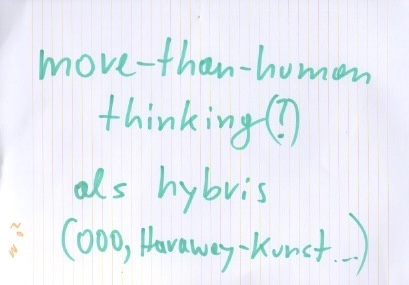 more-than-human
thinking(?)
als hybris
(OOO, Haraway-Kunst...)